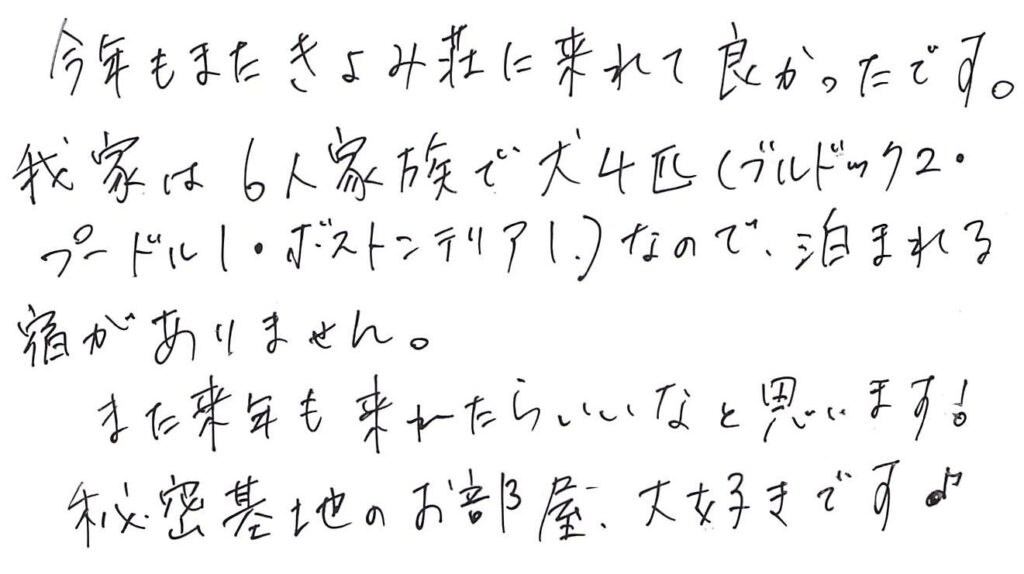 今年もまたきよみ荘に来れて良かったです。
我家は6人家族で犬4匹(ブルドック2・
プードル1・ボストンテリア1.)なので、泊まれる
宿がありません。
また来年も来れたらいいなと思います!
秘密基地のお部屋、大好きです♪